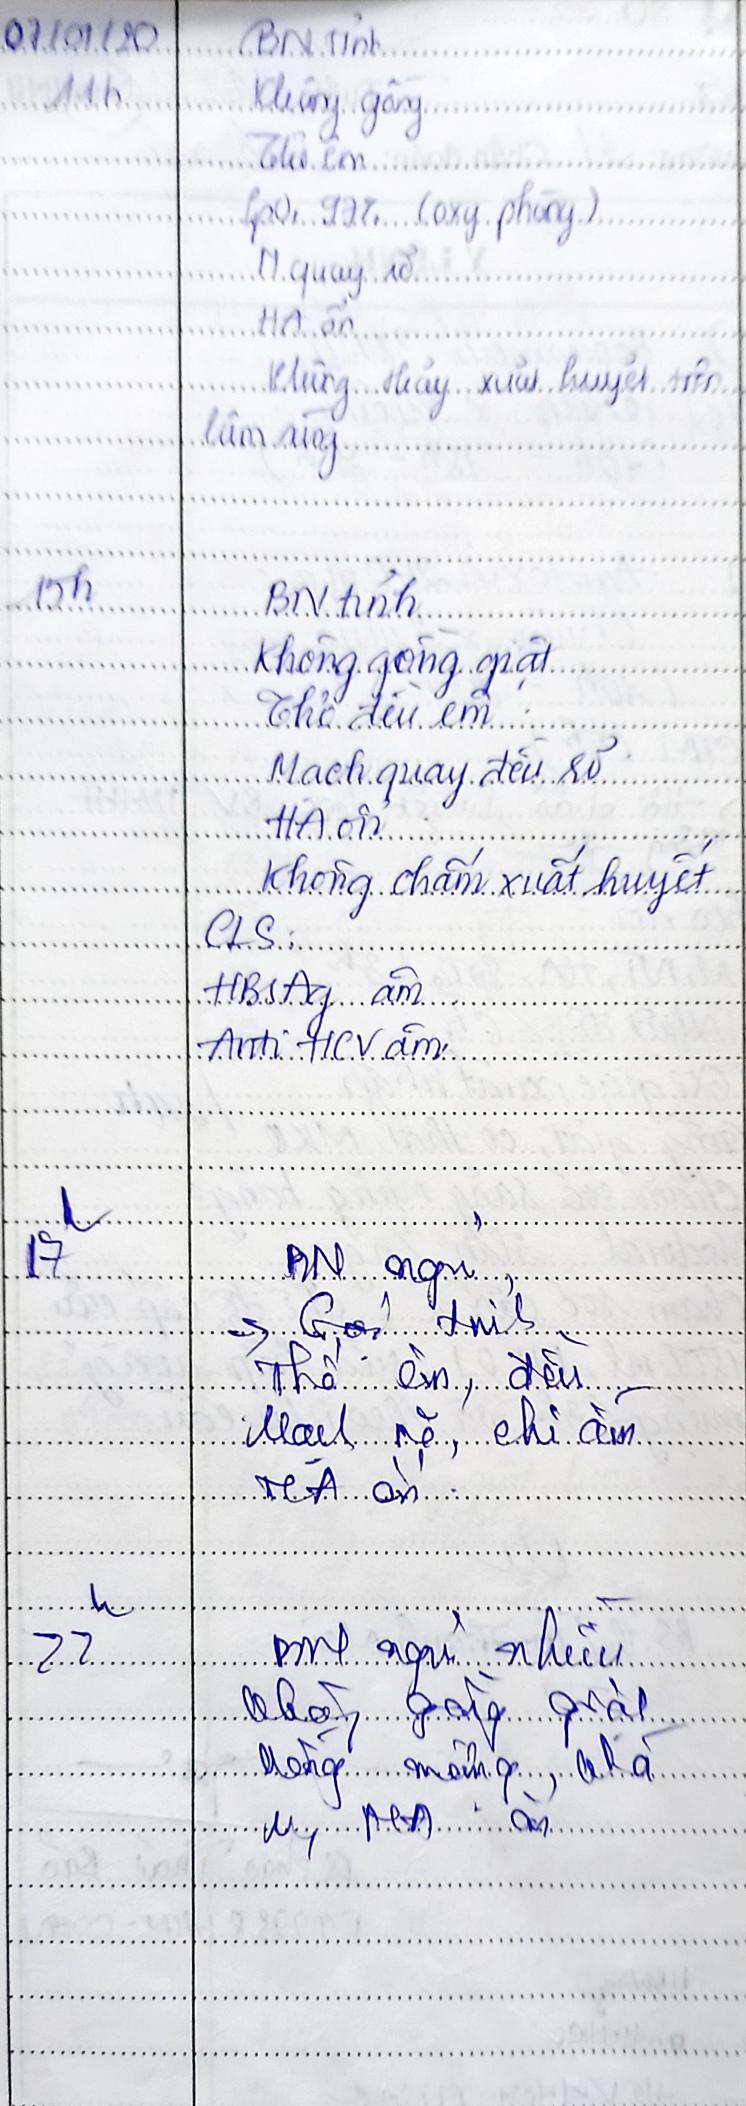 07/01/20 BN tỉnh
11h Không gồng
Thở êm
SpO2 97% (oxy phòng)
M quay rõ
HA ổn
Không thấy xuất huyết trên
lâm sàng
15h BN tỉnh
Không gồng giật
Thở đều êm
Mạch quay đều rõ
HA ổn
Không chấm xuất huyết
CLS:
HBsAg âm
Anti HCV âm
17h BN ngủ,
→ Gọi tỉnh
Thở êm, đều
Mạch rõ, chi ấm
HA ổn
22h BN ngủ nhiều
không gồng giật
hồng
M, HA ổn